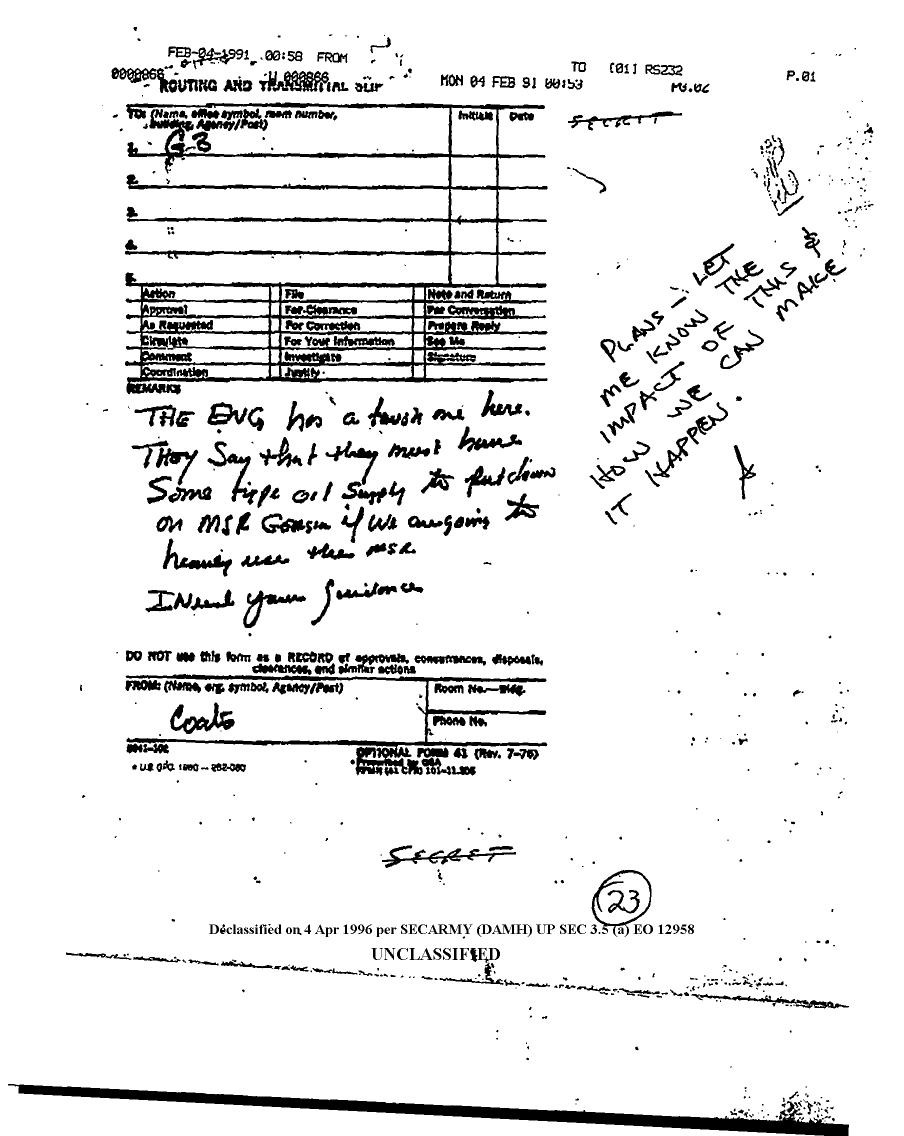 FEB-04-1991 00:58 FROM TO [01] RS232 P.01
0000866 000866 MON 04 FEB 91 00:53 PG.02
ROUTING AND TRANSMITTAL SLIP
TO: (Name, office symbol, room number, building, Agency/Post) Initials Date
SECRET
1. G-3
2.
3.
4.
5.
Action File Note and Return
Approval For Clearance Per Conversation
As Requested For Correction Prepare Reply
Circulate For Your Information See Me
Comment Investigate Signature
Coordination Justify
PLANS - LET
ME KNOW THE
IMPACT OF THIS &
HOW WE CAN MAKE
IT HAPPEN.
REMARKS
THE ENG has a here.
They Say that they must have
Some type oil Supply to put down
on MSR if We are going to
heavily use the MSR.
I Need your Guidance
DO NOT use this form as a RECORD of approvals, concurrences, disposals,
clearances, and similar actions
FROM: (Name, org. symbol, Agency/Post) Room No.—Bldg.
Coats
Phone No.
5041-102 OPTIONAL FORM 41 (Rev. 7-76)
* U.S. GPO: 1980 — 262-080 Prescribed by GSA
FPMR (41 CFR) 101-11.206
SECRET
23
Declassified on 4 Apr 1996 per SECARMY (DAMH) UP SEC 3.5 (a) EO 12958
UNCLASSIFIED